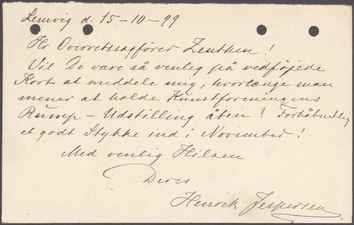 Lemvig d. 15-10-99
Hr Overretssagfører Zeuthen!
Vil De være så venlig på vedføjede
Kort at meddele mig, hvorlænge man
mener at holde Kunstforeningens
Rump-Udstilling åben! Forhåbentlig
et godt Stykke ind i November!
Med venlig Hilsen
Deres
Henrik Jespersen